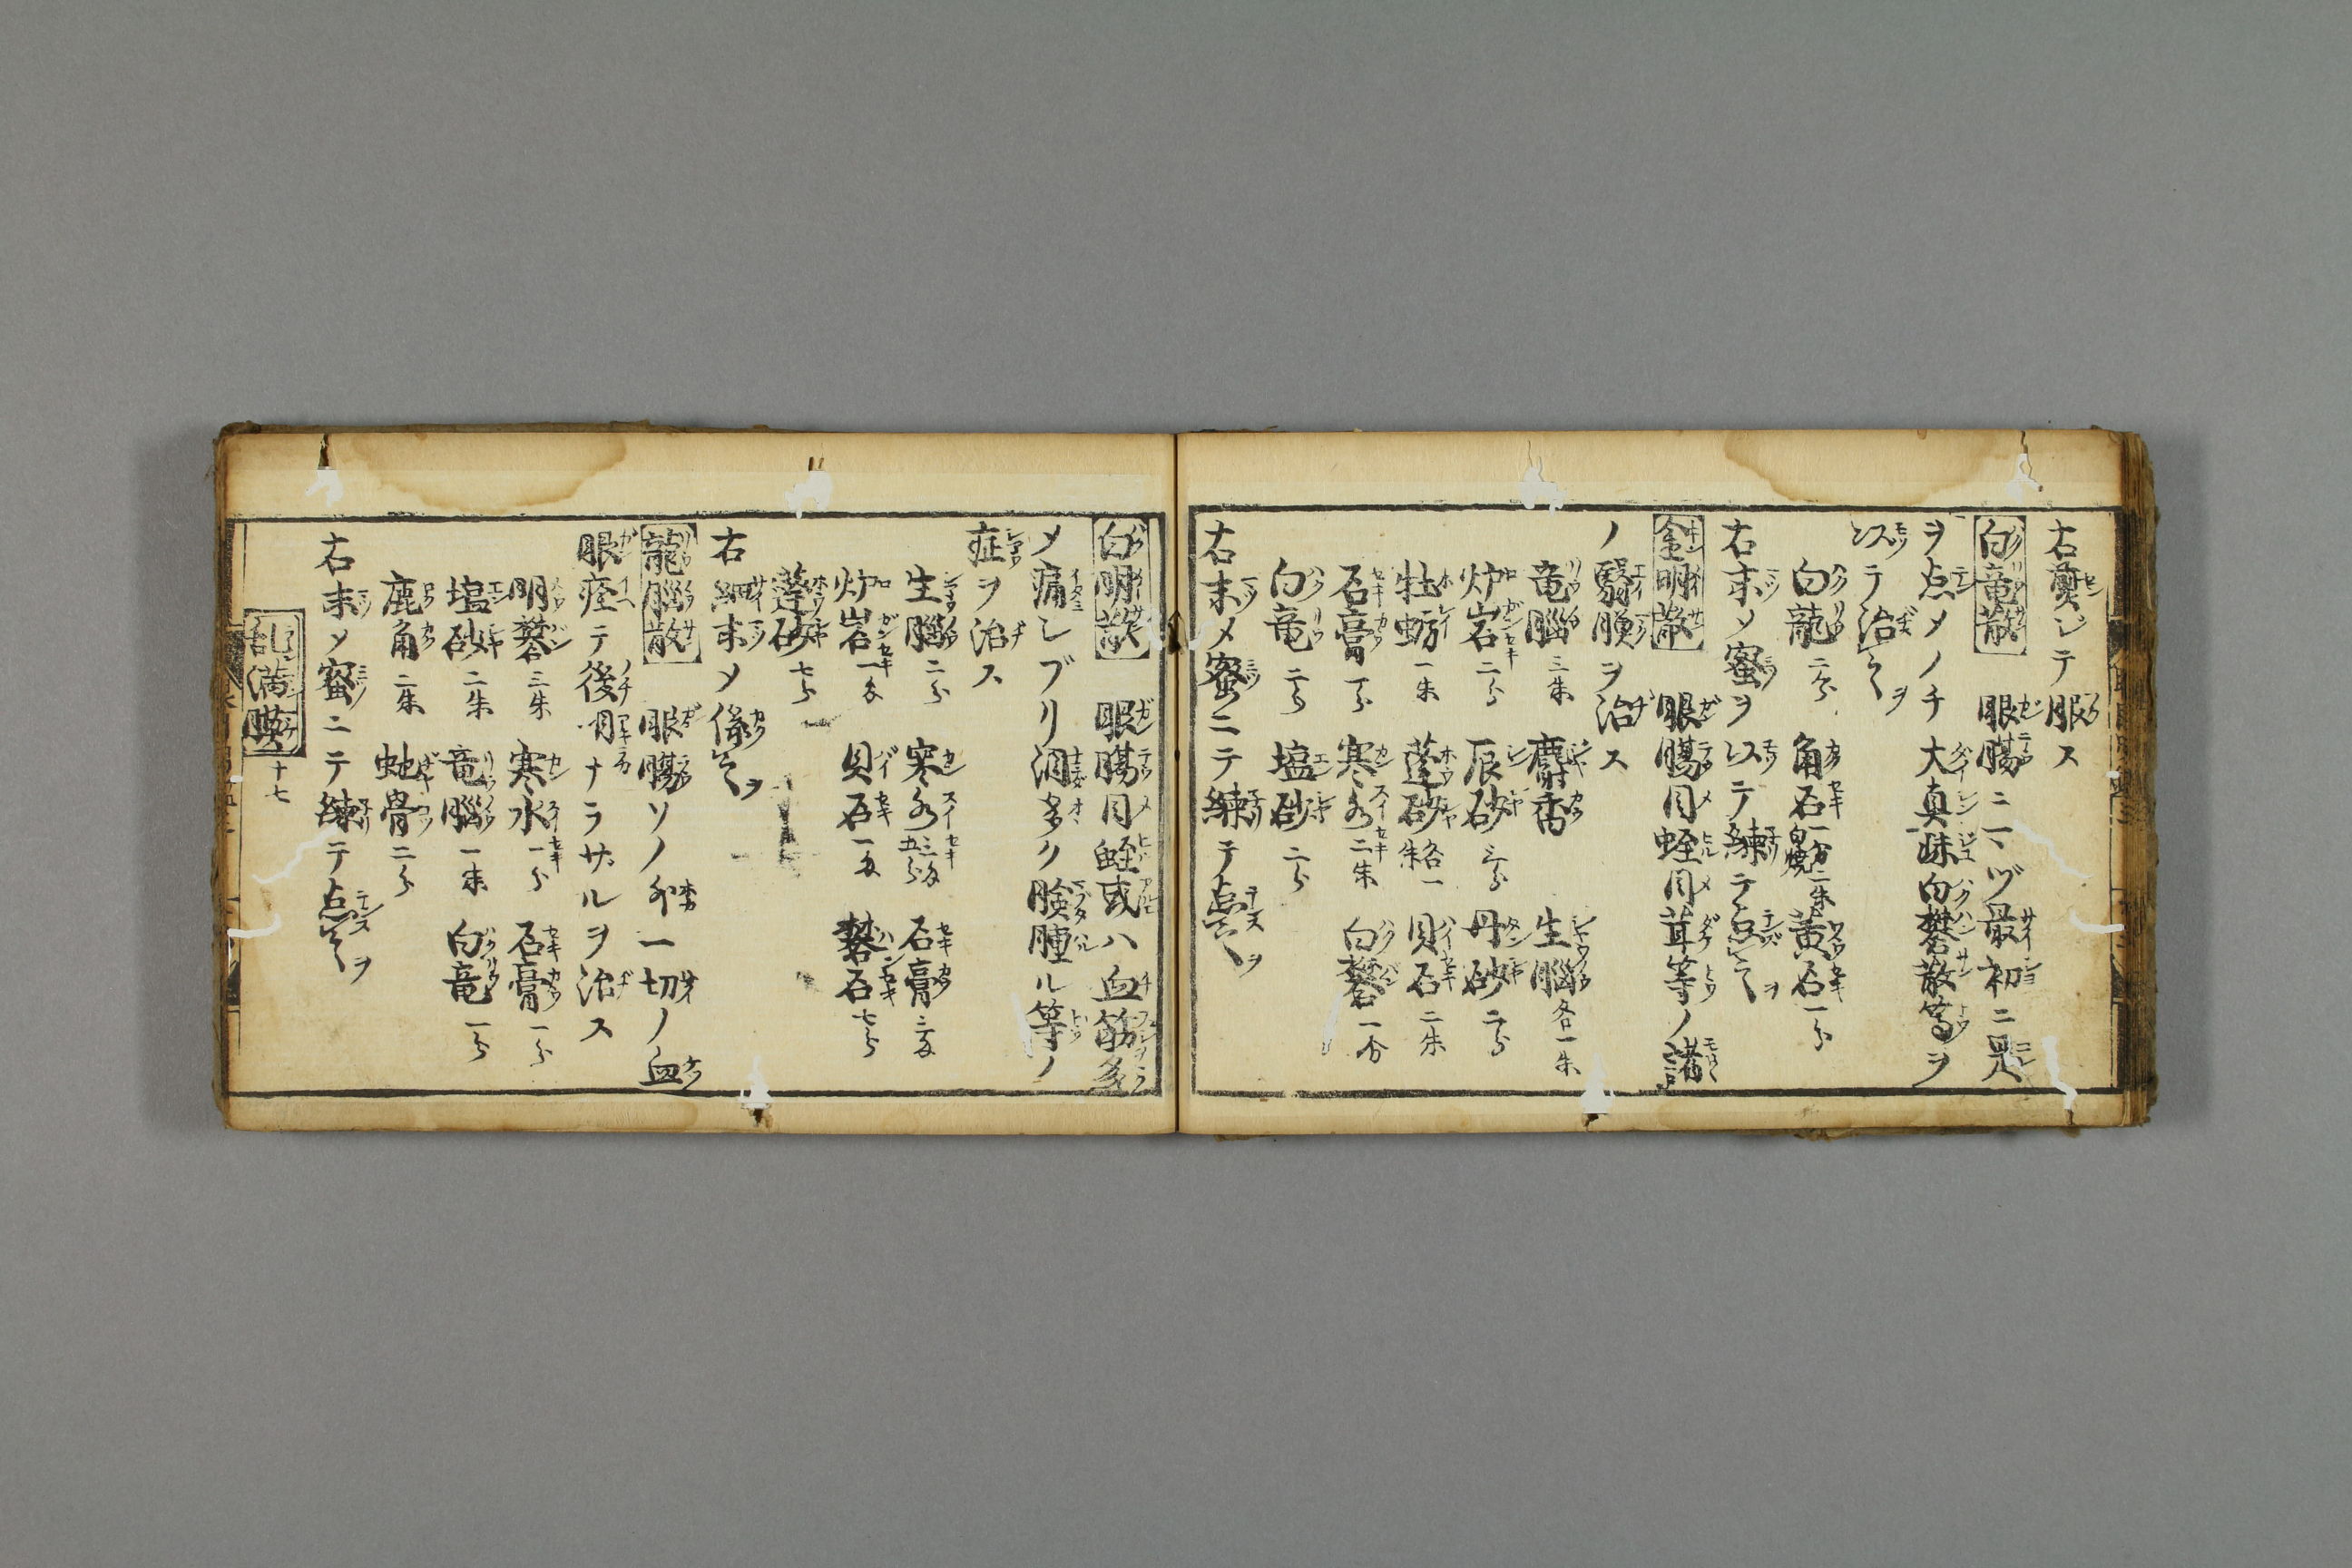 右煎ジテ服ス
白竜散 眼腸ニマヅ最初ニ是
ヲ点メノチ大真珠白礬散等ヲ
以テ治之ヲ
白龍二分 角石一分二朱白焼 黄石一分
右末メ蜜ヲ以テ練テ点之ヲ
金明散 眼腸目蛭目茸等ノ諸
ノ翳膜ヲ治ス
竜腦三朱 麝香 生腦各一朱
炉岩二分 辰砂三分 丹砂二分
牡蛎一朱 蓬砂各一朱 貝石二朱
石膏一分 寒水二朱 白礬一分
白竜二分 塩砂二分
右末メ蜜ニテ練テ点之ヲ
白明散 眼腸目蛭或ハ血筋多
メ痛シブリ泪多ク瞼腫ル等ノ
症ヲ治ス
生腦二分 寒水 石膏
炉岩 貝石 礬石七分
蓬砂七分
右細末メ係之ヲ
龍腦散 眼腸ソノ外一切ノ血
眼痊テ後明ナラサルヲ治ス
明礬三朱 寒水一分 石膏一分
塩砂二朱 竜腦一朱 白竜一分
鹿角二朱 蚰骨二分
右末メ蜜ニテ練テ点之ヲ
十七